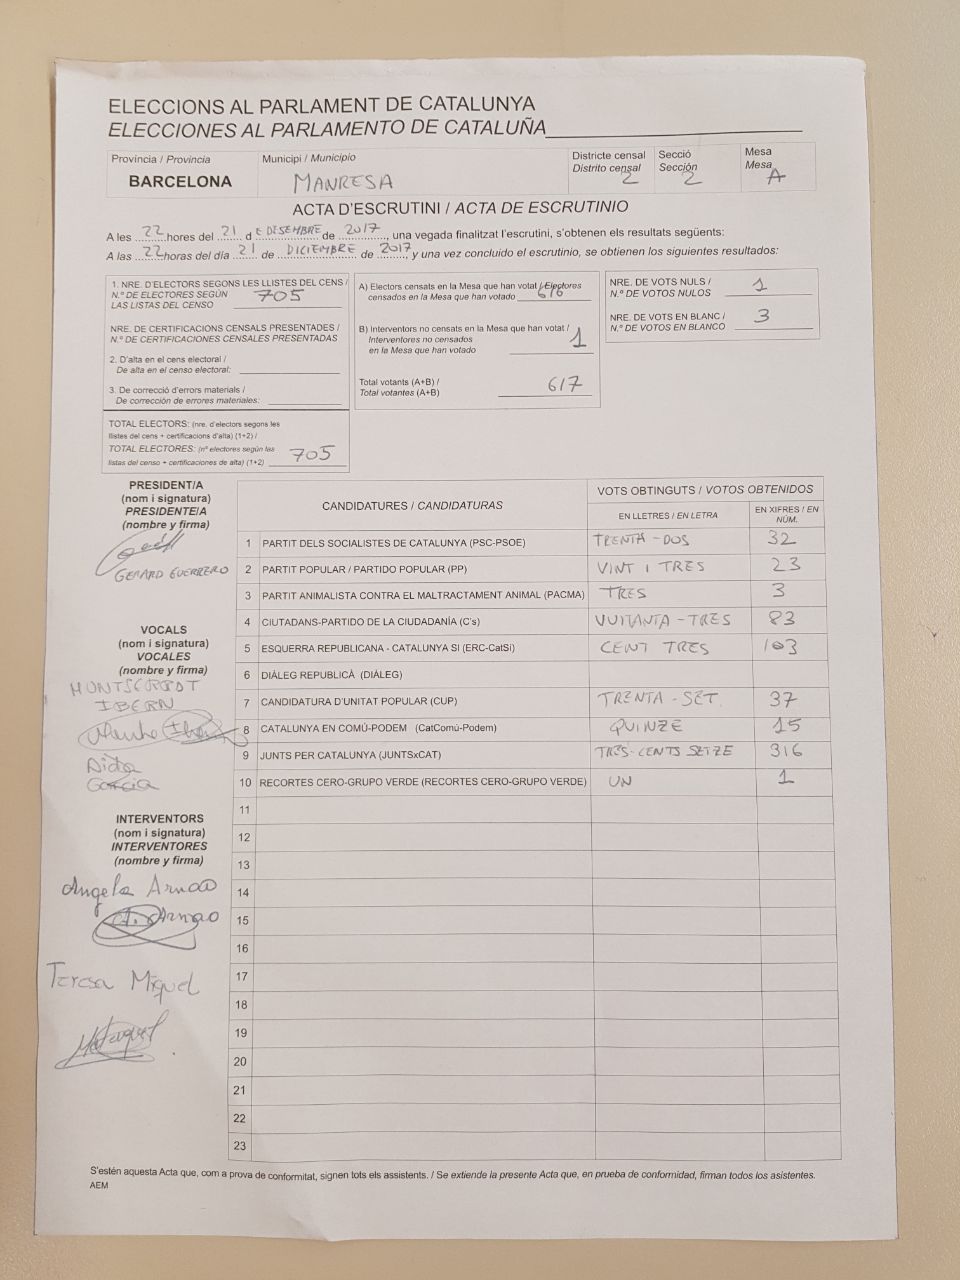 ELECCIONS AL PARLAMENT DE CATALUNYA
ELECCIONES AL PARLAMENTO DE CATALUÑA
Provincia / Provincia
BARCELONA
Municipi / Municipio
MANRESA
Districte censal
Distrito censal
2
Secció
Sección
2
Mesa
Mesa
A
ACTA D'ESCRUTINI / ACTA DE ESCRUTINIO
A les 22 hores del 21 d E DESEMBRE de 2017, una vegada finalitzat l'escrutini, s'obtenen els resultats següents:
A las 22 horas del día 21 de DICIEMBRE de 2017, y una vez concluido el escrutinio, se obtienen los siguientes resultados:
1. NRE. D'ELECTORS SEGONS LES LLISTES DEL CENS /
N.º DE ELECTORES SEGÚN
LAS LISTAS DEL CENSO
705
NRE. DE CERTIFICACIONS CENSALS PRESENTADES /
N.º DE CERTIFICACIONES CENSALES PRESENTADAS
2. D'alta en el cens electoral /
De alta en el censo electoral:
3. De correcció d'errors materials /
De corrección de errores materiales:
TOTAL ELECTORS: (nre. d'electors segons les
llistes del cens + certificacions d'alta) (1+2) /
TOTAL ELECTORES: (nº electores según las
listas del censo + certificaciones de alta) (1+2)
705
A) Electors censats en la Mesa que han votat / Electores
censados en la Mesa que han votado 616
B) Interventors no censats en la Mesa que han votat /
Interventores no censados
en la Mesa que han votado
1
Total votants (A+B) /
Total votantes (A+B)
617
NRE. DE VOTS NULS /
N.º DE VOTOS NULOS
1
NRE. DE VOTS EN BLANC /
N.º DE VOTOS EN BLANCO
3
PRESIDENT/A
(nom i signatura)
PRESIDENTE/A
(nombre y firma)
GERARD GUERRERO
VOCALS
(nom i signatura)
VOCALES
(nombre y firma)
MONTSERRAT
IBERN
Aida
García
INTERVENTORS
(nom i signatura)
INTERVENTORES
(nombre y firma)
Angela Arnao
A. Arnao
Teresa Miquel
CANDIDATURES / CANDIDATURAS
VOTS OBTINGUTS / VOTOS OBTENIDOS
EN LLETRES / EN LETRA
EN XIFRES / EN NÚM.
1 PARTIT DELS SOCIALISTES DE CATALUNYA (PSC-PSOE) TRENTA-DOS 32
2 PARTIT POPULAR / PARTIDO POPULAR (PP) VINT I TRES 23
3 PARTIT ANIMALISTA CONTRA EL MALTRACTAMENT ANIMAL (PACMA) TRES 3
4 CIUTADANS-PARTIDO DE LA CIUDADANÍA (C's) VUITANTA-TRES 83
5 ESQUERRA REPUBLICANA - CATALUNYA SI (ERC-CatSi) CENT TRES 103
6 DIÀLEG REPUBLICÀ (DIÀLEG)
7 CANDIDATURA D'UNITAT POPULAR (CUP) TRENTA-SET. 37
8 CATALUNYA EN COMÚ-PODEM (CatComú-Podem) QUINZE 15
9 JUNTS PER CATALUNYA (JUNTSxCAT) TRES-CENTS SETZE 316
10 RECORTES CERO-GRUPO VERDE (RECORTES CERO-GRUPO VERDE) UN 1
11
12
13
14
15
16
17
18
19
20
21
22
23
S'estén aquesta Acta que, com a prova de conformitat, signen tots els assistents. / Se extiende la presente Acta que, en prueba de conformidad, firman todos los asistentes.
AEM